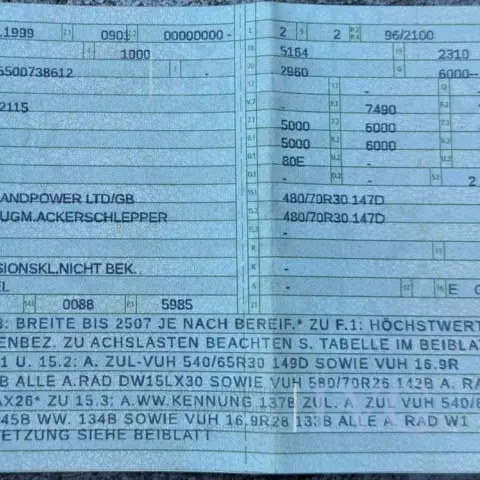 .1999 2.1 0901 2.2 00000000 - L 2 9 2 P.2 P.4 96/2100
4 1000 18 5164 19 2310
5500738612 - 20 2960 G 6000--
12 - 13 - Q -
2115 V.7 - F.1 7490 F.2
7.1 5000 7.2 6000
8.1 5000 8.2 6000
U.1 80E U.2 -
O.1 - O.2 - S.1 2
ANDPOWER LTD/GB 15.1 480/70R30 147D
UGM.ACKERSCHLEPPER 15.2 480/70R30 147D
15.3 -
R - 11
SIONSKL.NICHT BEK. K -
EL 6 - 17 16 E
14.1 0088 P.1 5985 21
: BREITE BIS 2507 JE NACH BEREIF.* ZU F.1: HÖCHSTWERT
ENBEZ. ZU ACHSLASTEN BEACHTEN S. TABELLE IM BEIBLAT
1 U. 15.2: A. ZUL-VUH 540/65R30 149D SOWIE VUH 16.9R
B ALLE A.RAD DW15LX30 SOWIE VUH 580/70R26 142B A. RA
AX26* ZU 15.3: A.WW.KENNUNG 137B ZUL. A. ZUL VUH 540/6
145B WW. 134B SOWIE VUH 16.9R28 133B ALLE A. RAD W1
SETZUNG SIEHE BEIBLATT